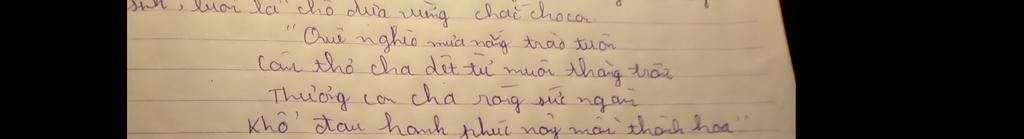 sinh, luôn là chỗ dựa vững chắc cho con
"Quê nghèo mưa nắng trào tuôn
Câu thơ cha dệt từ muôn thăng trầm
Thương con cha ráng sức ngâm
Khổ đau hạnh phúc nảy mầm thành hoa"